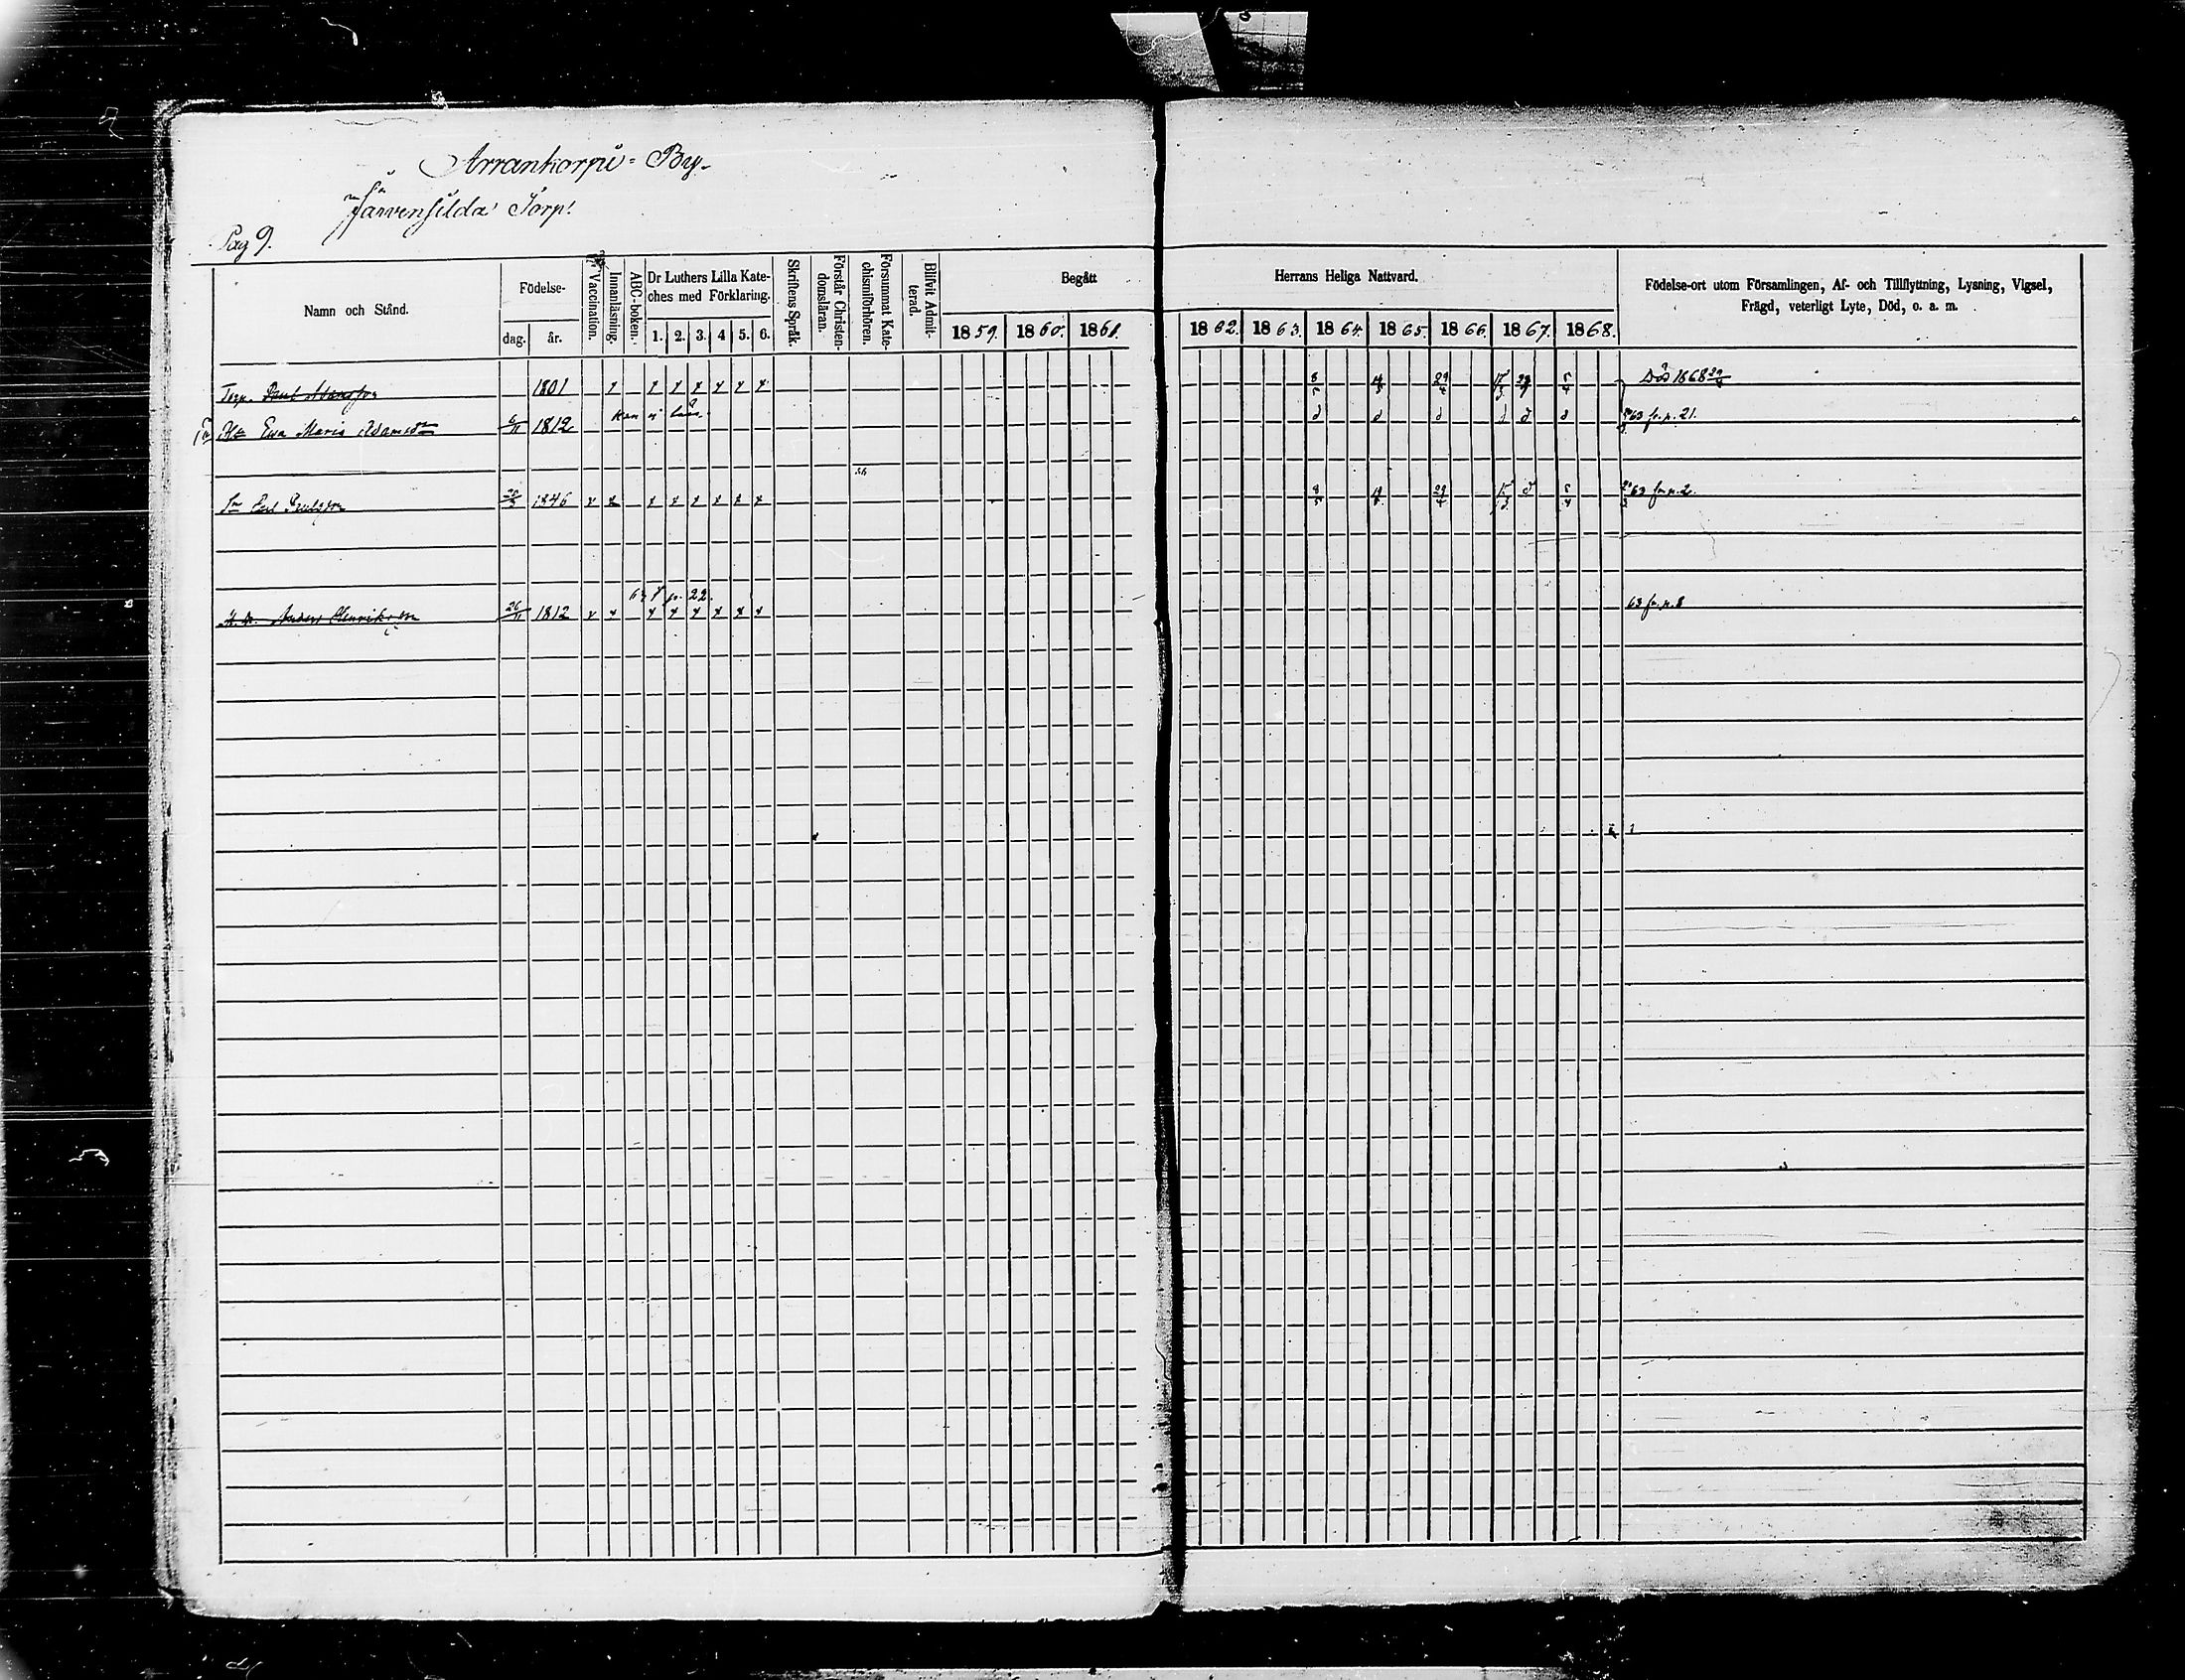 Arrankorpi By
Torp
Pag 9.
Namn och Stånd.
Födelse-
dag.
år.
Vaccination.
Innanläsning.
ABC-boken.
Dr Luthers Lilla Kate-
ches med Förklaring.
1. 2. 3. 4 5. 6.
Skriftens Språk.
Förstår Christen-
domsläran.
Försummat Kate-
chismiförhören.
Blifvit Admit-
terad.
Begått
1859. 1860. 1861.
Herrans Heliga Nattvard.
1862. 1863. 1864. 1865. 1866. 1867. 1868.
Födelse-ort utom Församlingen, Af- och Tillflyttning, Lysning, Vigsel,
Frägd, veterligt Lyte, Död, o. a. m.
Torp. Paul Adamsson 1801 x x x x x x x 8/5 29/4 5/4 Död 1868 29/4
Ewa Maria Adamsdr 6/11 1812 d d d d d d 63 fr. p. 21.
Sn Carl Paulsson 1846 x x x x x x x x 8/5 29/4 d 5/4 63 fr. p. 2.
63 fr p. 22.
Anders Henriksson 26/11 1812 x x x x x x x x 63 fr. p. 8